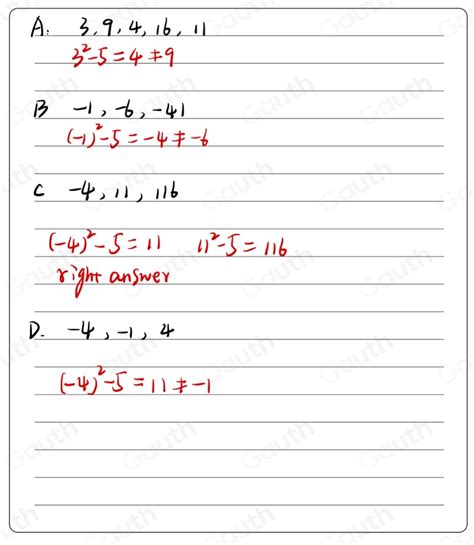 A. 3, 9, 4, 16, 11
3²-5=4≠9
B -1, -6, -41
(-1)²-5=-4≠-6
C -4, 11, 116
(-4)²-5=11 11²-5=116
right answer
D. -4, -1, 4
(-4)²-5=11≠-1